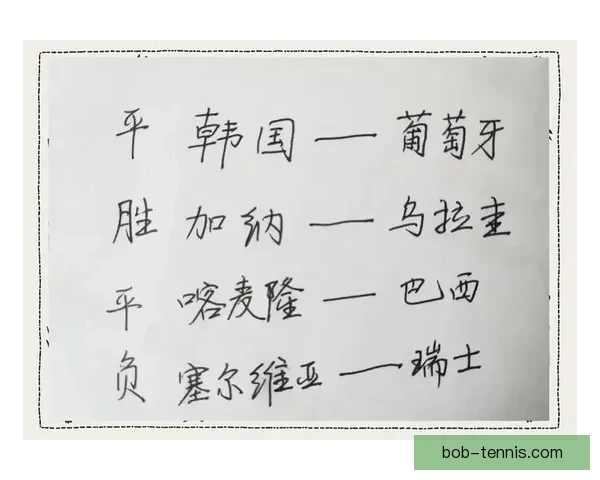 平 韩国 — 葡萄牙
胜 加纳 — 乌拉圭
平 喀麦隆 — 巴西
负 塞尔维亚 — 瑞士
bob-tennis.com